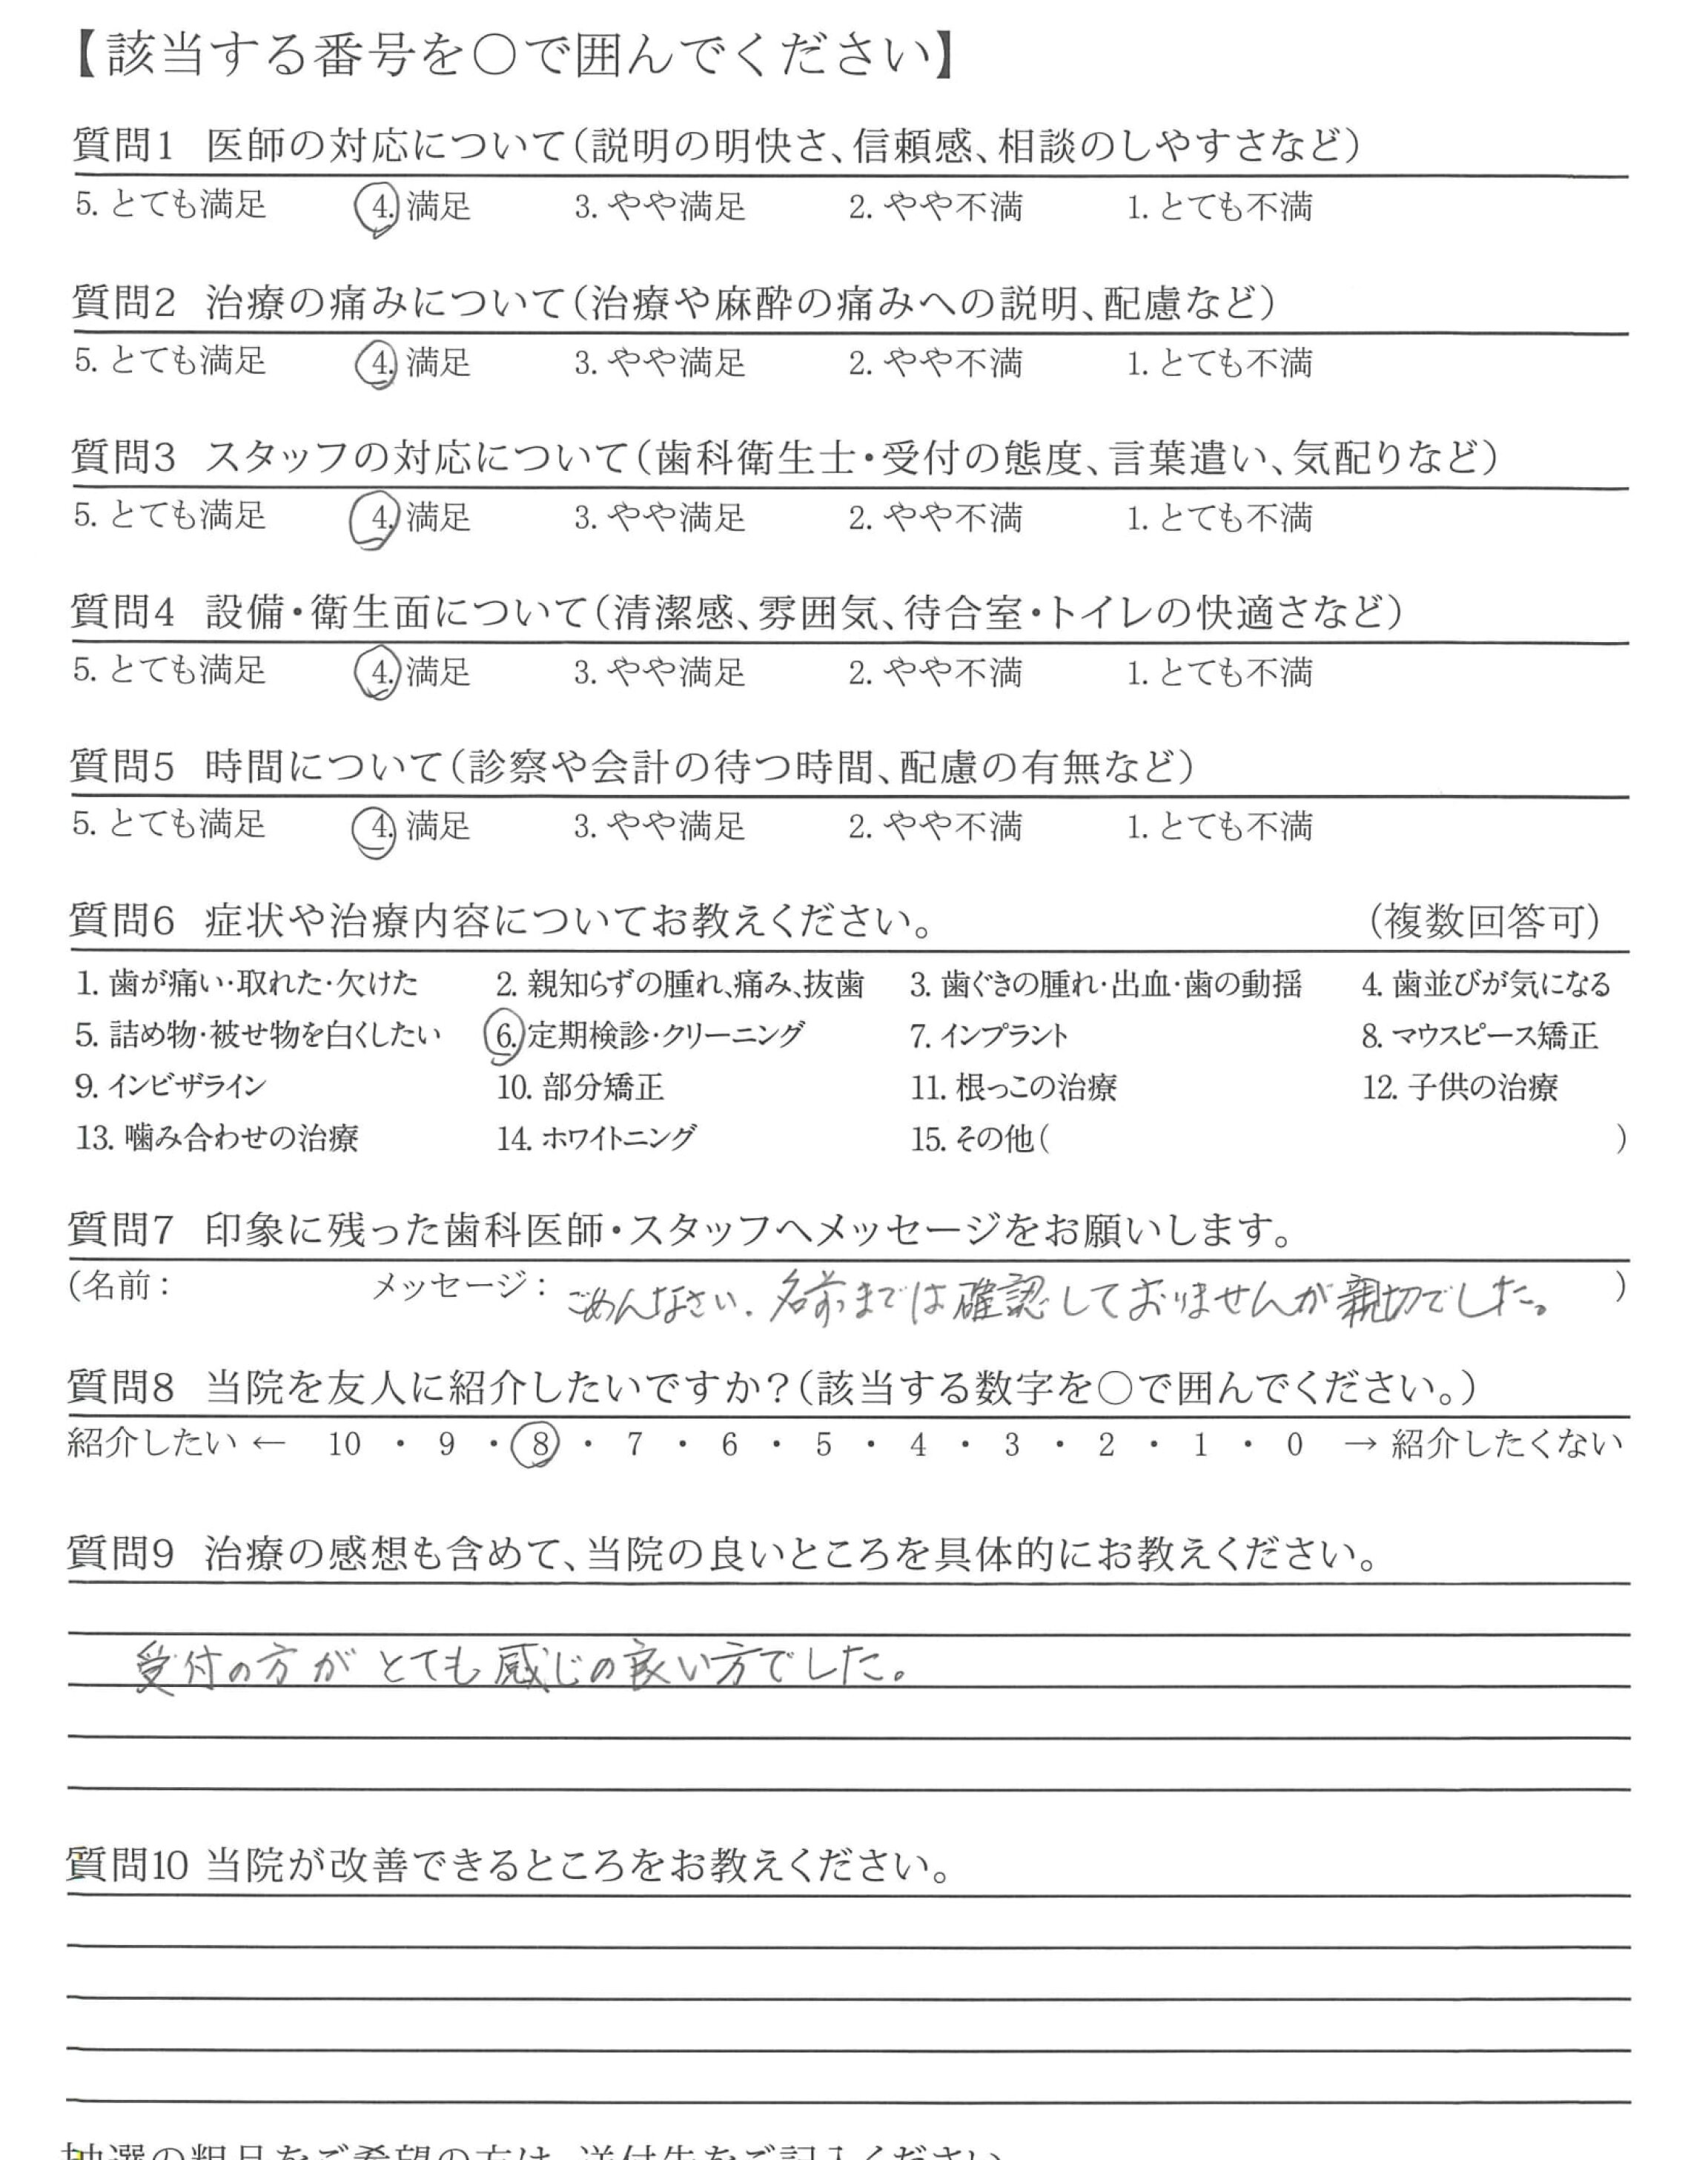 【該当する番号を○で囲んでください】
質問1 医師の対応について(説明の明快さ、信頼感、相談のしやすさなど)
5. とても満足 4. 満足 3. やや満足 2. やや不満 1. とても不満
質問2 治療の痛みについて(治療や麻酔の痛みへの説明、配慮など)
5. とても満足 4. 満足 3. やや満足 2. やや不満 1. とても不満
質問3 スタッフの対応について(歯科衛生士・受付の態度、言葉遣い、気配りなど)
5. とても満足 4. 満足 3. やや満足 2. やや不満 1. とても不満
質問4 設備・衛生面について(清潔感、雰囲気、待合室・トイレの快適さなど)
5. とても満足 4. 満足 3. やや満足 2. やや不満 1. とても不満
質問5 時間について(診察や会計の待つ時間、配慮の有無など)
5. とても満足 4. 満足 3. やや満足 2. やや不満 1. とても不満
質問6 症状や治療内容についてお教えください。 (複数回答可)
1. 歯が痛い・取れた・欠けた 2. 親知らずの腫れ、痛み、抜歯 3. 歯ぐきの腫れ・出血・歯の動揺 4. 歯並びが気になる
5. 詰め物・被せ物を白くしたい 6. 定期検診・クリーニング 7. インプラント 8. マウスピース矯正
9. インビザライン 10. 部分矯正 11. 根っこの治療 12. 子供の治療
13. 噛み合わせの治療 14. ホワイトニング 15. その他( )
質問7 印象に残った歯科医師・スタッフへメッセージをお願いします。
(名前: メッセージ: ごめんなさい. 名前までは確認しておりませんが親切でした。 )
質問8 当院を友人に紹介したいですか?(該当する数字を○で囲んでください。)
紹介したい ← 10 ・ 9 ・ 8 ・ 7 ・ 6 ・ 5 ・ 4 ・ 3 ・ 2 ・ 1 ・ 0 → 紹介したくない
質問9 治療の感想も含めて、当院の良いところを具体的にお教えください。
受付の方がとても感じの良い方でした。
質問10 当院が改善できるところをお教えください。
抽選の粗品をご希望の方は、送付先をご記入ください